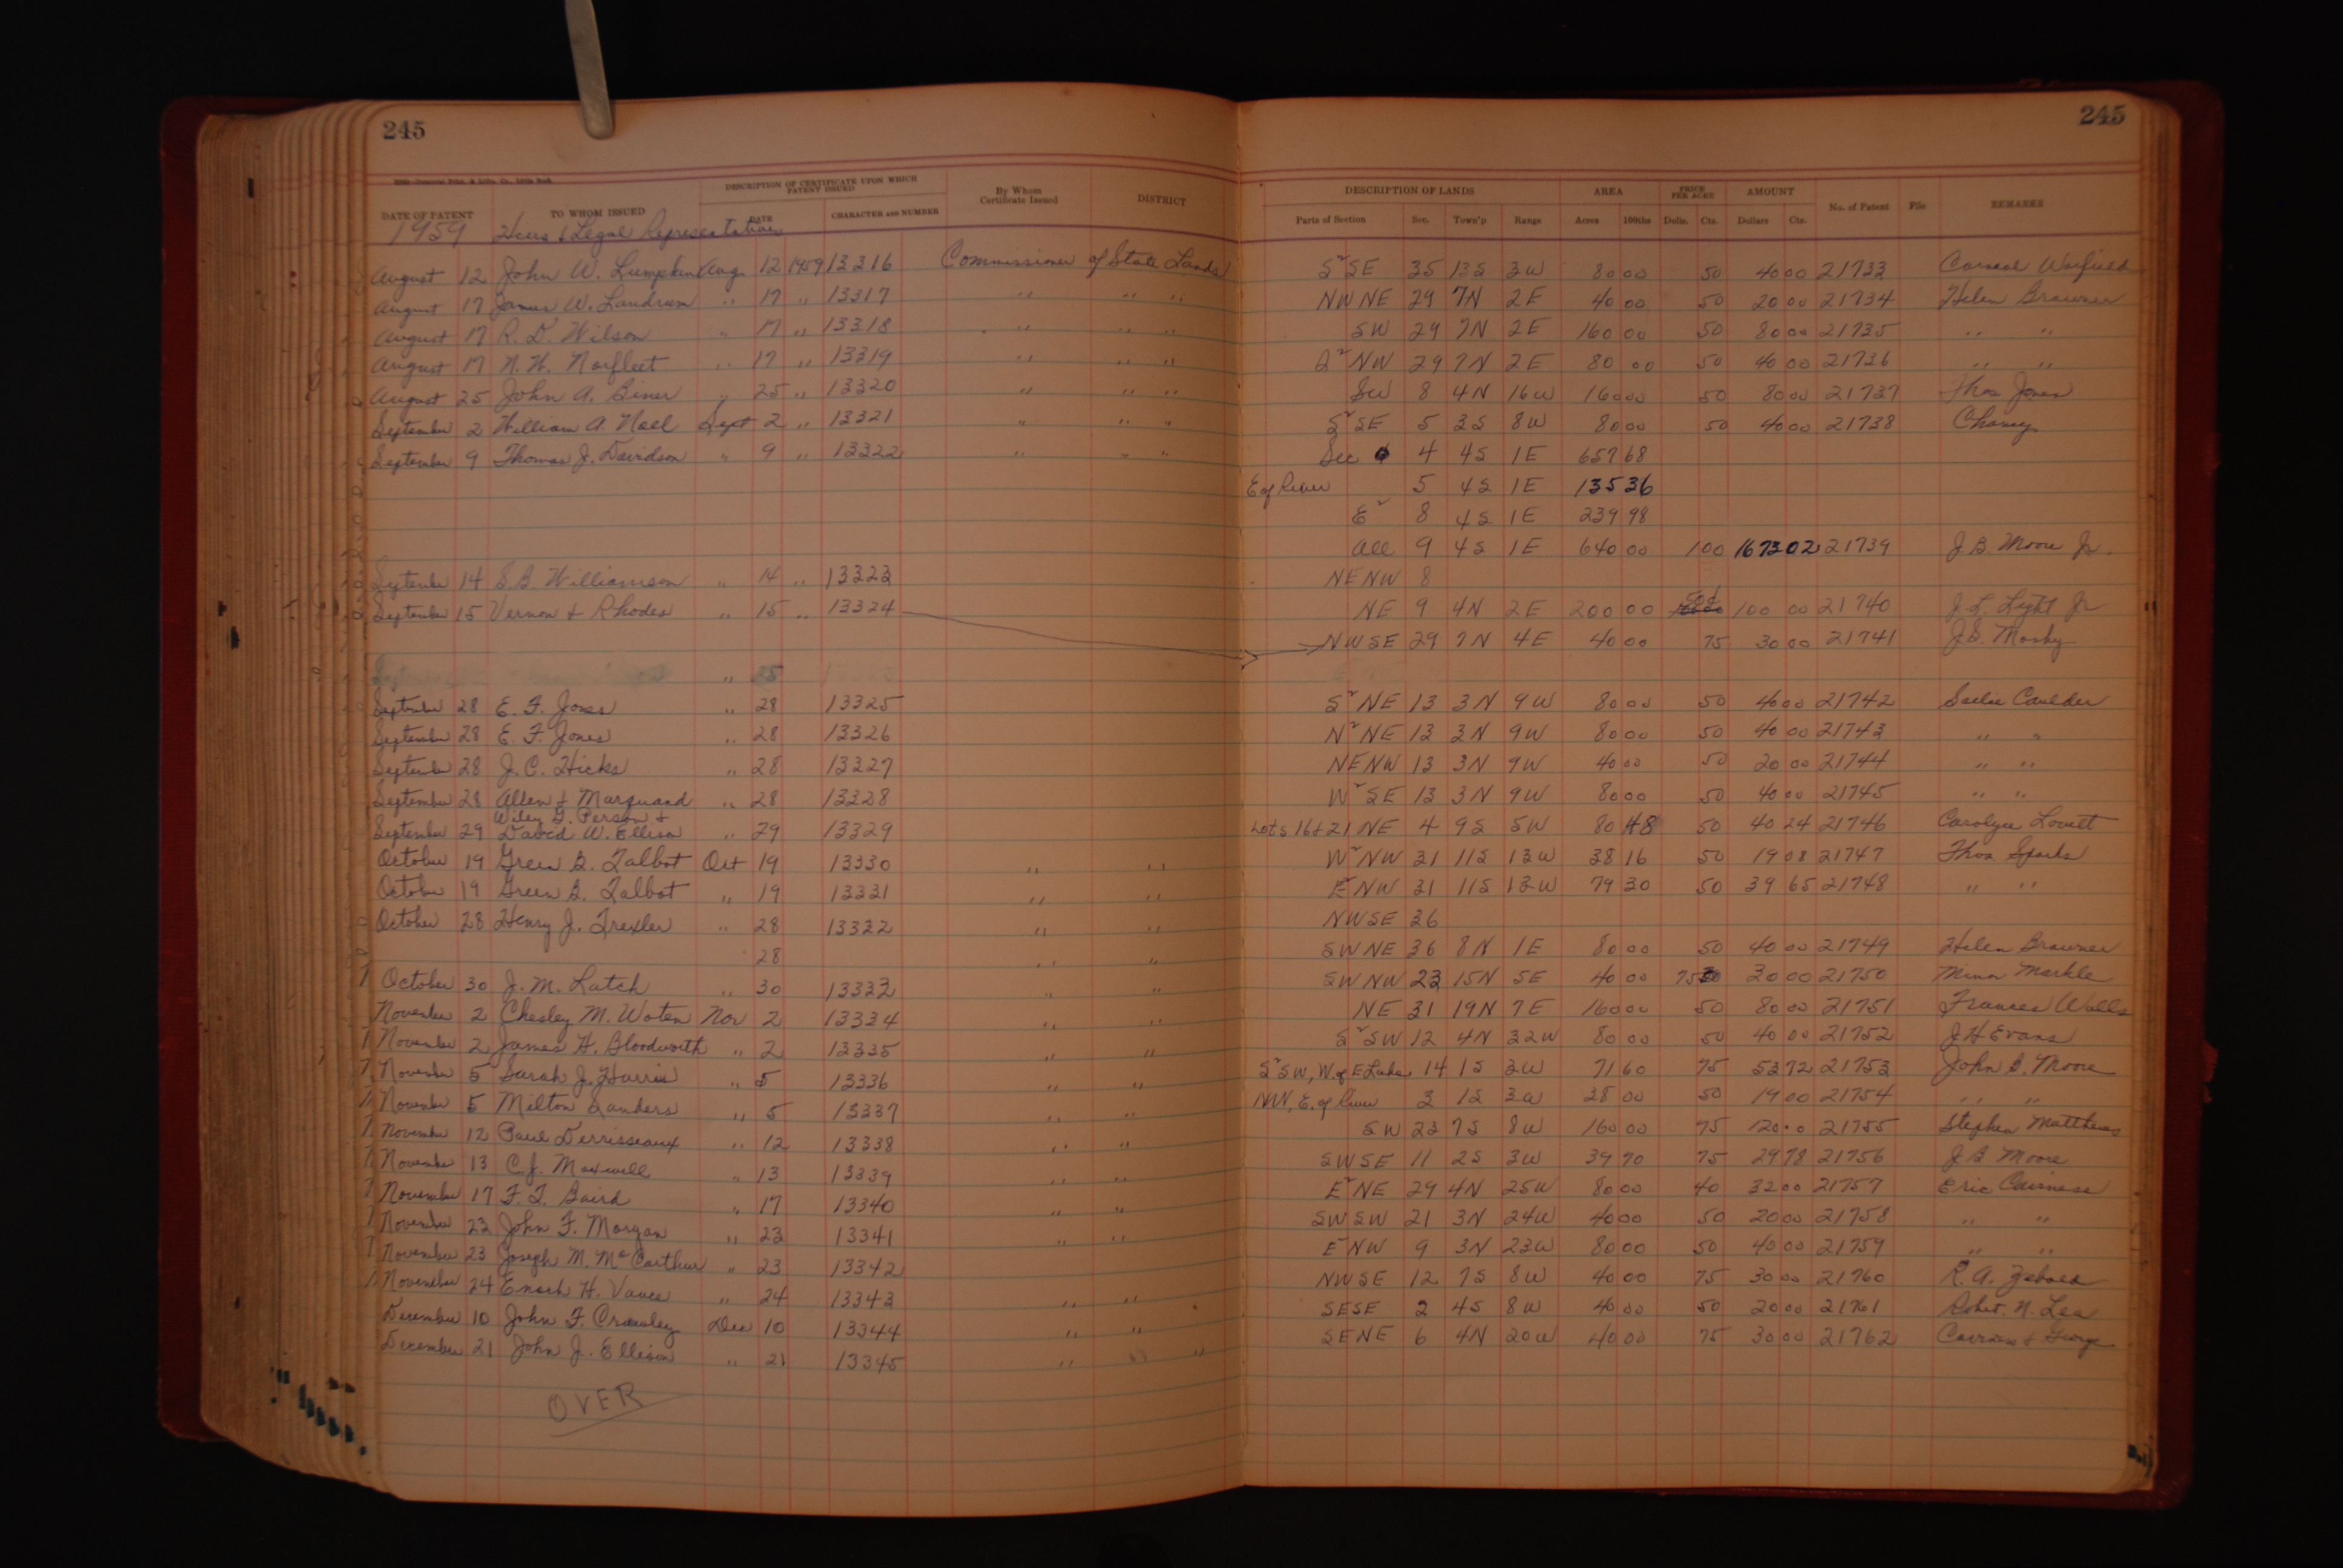 245
DATE OF PATENT TO WHOM ISSUED DESCRIPTION OF CERTIFICATE UPON WHICH PATENT ISSUED DATE CHARACTER AND NUMBER By Whom Certificate Issued DISTRICT
1959 Heirs & Legal Representatives
August 12 John W. Lumpkin Aug. 12 1959 13316 Commissioner of State Lands
August 17 James W. Landrum " 17 " 13317 " " "
August 17 R. D. Wilson " 17 " 13318 " " "
August 17 N. H. Norfleet " 17 " 13319 " " "
August 25 John A. Biner " 25 " 13320 " " "
September 2 William A. Noel Sept 2 " 13321 " " "
September 9 Thomas J. Davidson " 9 " 13322 " " "
September 14 S. B. Williamson " 14 " 13323
September 15 Vernon & Rhodes " 15 " 13324
" 25
September 28 E. F. Jones " 28 13325
September 28 E. F. Jones " 28 13326
September 28 J. C. Hicks " 28 13327
September 28 Allen & Marquand " 28 13328
Wiley G. Person &
September 29 David W. Ellison " 29 13329
October 19 Green B. Talbot Oct 19 13330 " "
October 19 Green B. Talbot " 19 13331 " "
October 28 Henry J. Trexler " 28 13332 " "
28 " "
October 30 J. M. Latch " 30 13333 " "
November 2 Chesley M. Woten Nov 2 13334 " "
November 2 James H. Bloodworth " 2 13335 " "
November 5 Sarah J. Harris " 5 13336 " "
November 5 Melton Sanders " 5 13337 " "
November 12 Paul Derrisseaux " 12 13338 " "
November 13 C. J. Maxwell " 13 13339 " "
November 17 F. T. Baird " 17 13340 " "
November 23 John F. Morgan " 23 13341 " "
November 23 Joseph M. McCarthur " 23 13342
November 24 Enoch H. Vance " 24 13343 " "
December 10 John F. Crowley Dec 10 13344 " "
December 21 John J. Ellison " 21 13345 " " "
OVER
245
DESCRIPTION OF LANDS AREA PRICE PER ACRE AMOUNT No. of Patent File REMARKS
Parts of Section Sec. Town'p Range Acres 100ths Dolls. Cts. Dollars Cts.
S²SE 35 13S 3W 80 00 50 40 00 21733 Carneal Warfield
NWNE 29 7N 2E 40 00 50 20 00 21734 Helen Brawner
SW 29 7N 2E 160 00 50 80 00 21735 " "
S²NW 29 7N 2E 80 00 50 40 00 21736 " "
SW 8 4N 16W 160 00 50 80 00 21737 Thos Jones
S²SE 5 3S 8W 80 00 50 40 00 21738 Chaney
Sec 4 4S 1E 657 68
E of River 5 4S 1E 135 36
E² 8 4S 1E 239 98
All 9 4S 1E 640 00 1 00 1673 02 21739 J. B. Moore Jr.
NENW 8
NE 9 4N 2E 200 00 100 00 21740 J. L. Light Jr
NWSE 29 7N 4E 40 00 75 30 00 21741 J. B. Mosby
S²NE 13 3N 9W 80 00 50 40 00 21742 Caulder
N²NE 13 3N 9W 80 00 50 40 00 21743 " "
NENW 13 3N 9W 40 00 50 20 00 21744 " "
W²SE 13 3N 9W 80 00 50 40 00 21745 " "
Lots 16 & 21 NE 4 9S 5W 80 48 50 40 24 21746 Carolyn Lovett
W²NW 31 11S 13W 38 16 50 19 08 21747 Thos Sparks
E²NW 31 11S 13W 79 30 50 39 65 21748 " "
NWSE 36
SWNE 36 8N 1E 80 00 50 40 00 21749 Helen Brawner
SWNW 23 15N 5E 40 00 75 30 00 21750 Minor Markle
NE 31 19N 7E 160 00 50 80 00 21751 Frances Walls
S²SW 12 4N 32W 80 00 50 40 00 21752 J H Evans
S²SW, W. of E Lake 14 1S 3W 71 60 75 53 72 21753 John B. Moore
NW, E. of River 3 1S 3W 38 00 50 19 00 21754 " "
SW 23 7S 8W 160 00 75 120 00 21755 Stephen Matthews
SWSE 11 2S 3W 39 70 75 29 78 21756 J B Moore
E²NE 29 4N 25W 80 00 40 32 00 21757 Eric Cairness
SWSW 21 3N 24W 40 00 50 20 00 21758 " "
E²NW 9 3N 23W 80 00 50 40 00 21759 " "
NWSE 12 7S 8W 40 00 75 30 00 21760 R. A. Zebold
SESE 2 4S 8W 40 00 50 20 00 21761 Robt. N. Lea
SENE 6 4N 20W 40 00 75 30 00 21762 & George